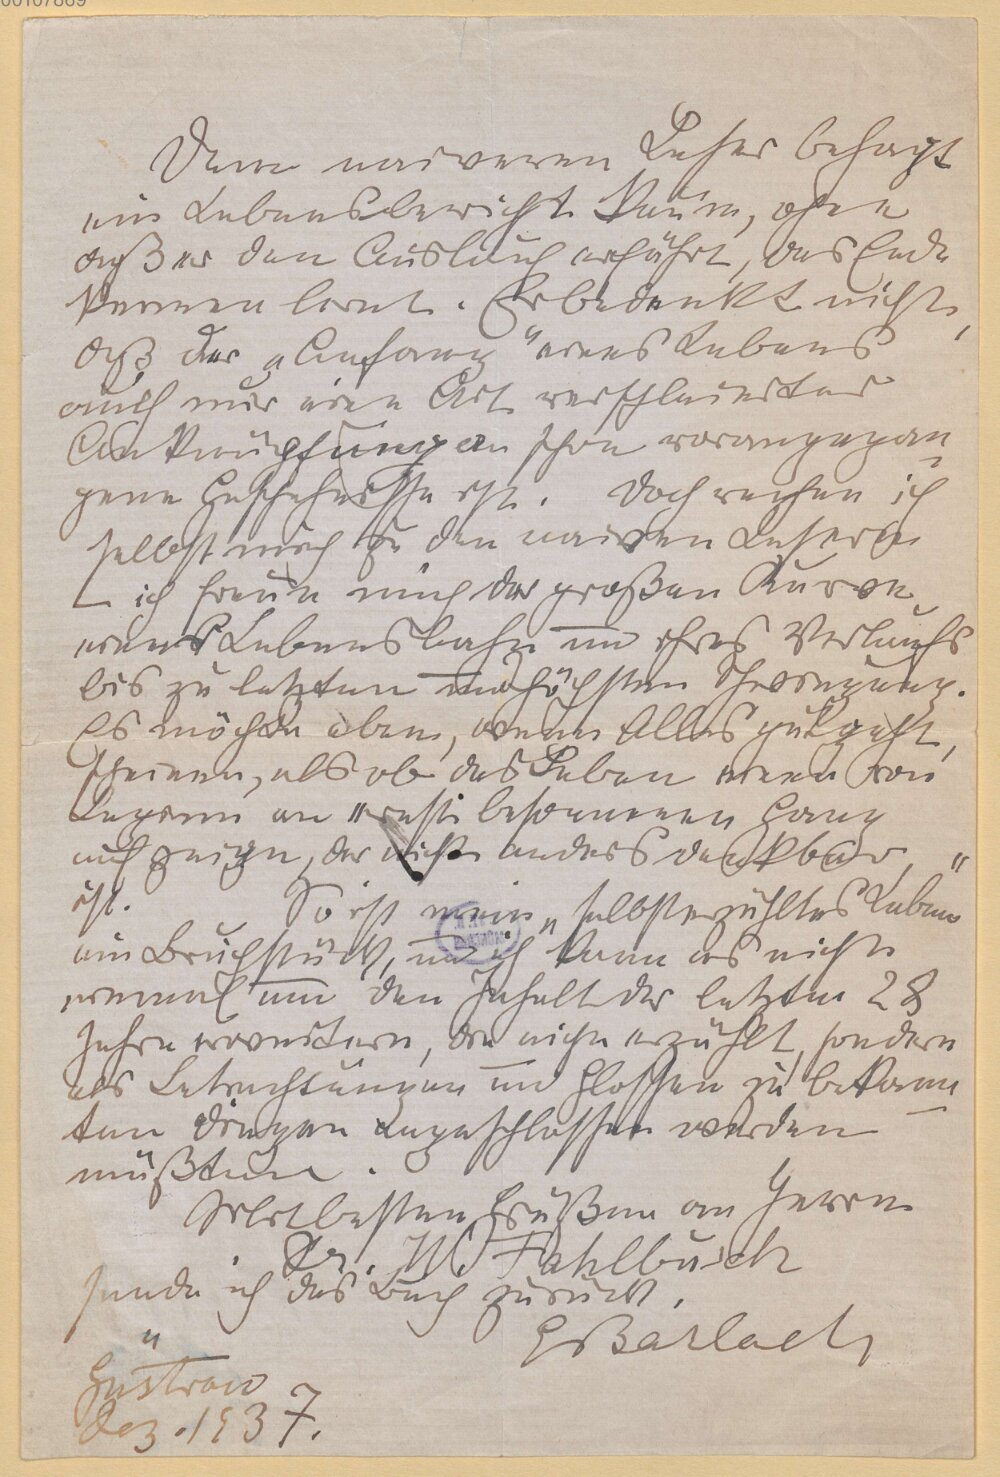 00107869
Dem naiveren Leser behagt
ein Lebensbericht kaum, ohne
daß er den Ausklang erfährt, das Ende
kennen lernt. Er bedenkt nicht,
daß der „Anfang" eines Lebens
auch nur eine Art verschleierter
Anknüpfung an schon vorangegan
gene Geschehnisse ist. Doch rechne ich
selbst mich zu den naiven Lesern
— ich freue mich der großen Kurve
einer Lebensbahn und ihres Verlaufs
bis zur letzten und höchsten Steigerung.
Es möchte eben, wenn Alles gut geht,
scheinen, als ob das Leben einen von
Beginn an " besonnenen Gang
aufzeige, der nicht anders denkbar "
ist. So ist mein „selbsterzähltes Leben
ein Bruchstück, und ich kann es nicht
einmal um den Inhalt der letzten 28
Jahre erweitern, die nicht erzählt, sondern
als Betrachtungen und Glossen zu bekann
ten Dingen angeschlossen werden
müßten.
besten Grüßen an Herrn
Dr. W. Fahlbusch
sende ich das Buch zurück.
E Barlach
Güstrow
Dez. 1937.